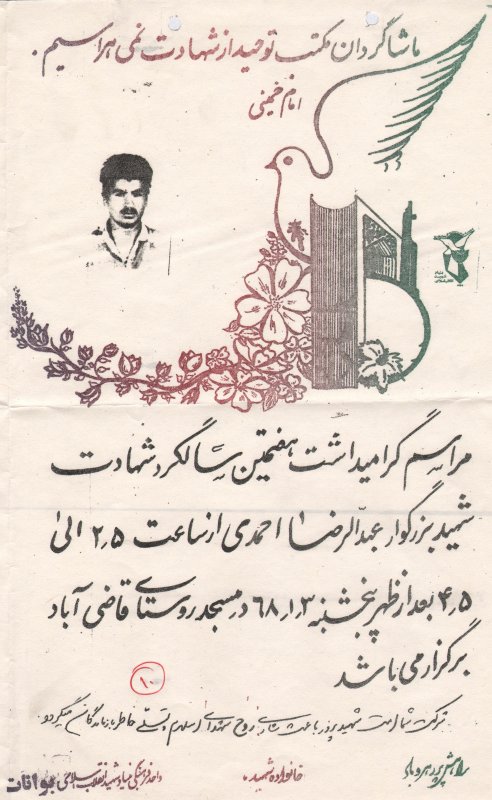 ما شاگردان مکتب توحید از شهادت نمی هراسیم.
امام خمینی
بنیاد شهید انقلاب اسلامی
مراسم گرامیداشت هفتمین سالگرد شهادت
شهید بزرگوار عبدالرضا احمدی از ساعت ۲٫۵ الی
۴٫۵ بعد از ظهر پنجشنبه ۶۸٫۱٫۳ در مسجد روستای قاضی آباد
برگزار می باشد
۱۰
شرکت شما امت شهید پرور باعث شادی روح شهدای اسلام و تسلی خاطر بازماندگان میگردد
راهش پر رهرو باد
خانواده شهید.
واحد فرهنگی بنیاد شهید انقلاب اسلامی بوانات